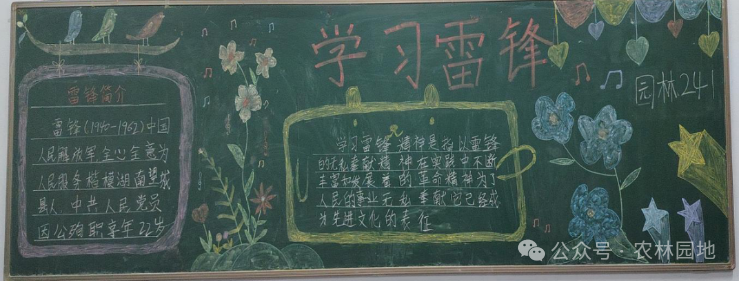 学习雷锋
园林241
雷锋简介
雷锋(1940-1962)中国
人民解放军全心全意为
人民服务楷模湖南望城
县人,中共人民党员
因公殉职享年22岁
学习雷锋精神是指以雷锋
的无私奉献精神在实践中不断
丰富和发展着的革命精神为了
人民的事业无私奉献它已经成
为先进文化的表征
公众号·农林园地